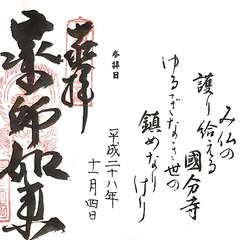 み仏の
護り給える
國分寺
ゆるぎなき世の
鎮めなり
けり
奉拝
参拝日
平成二十八年
十一月四日
薬師如来